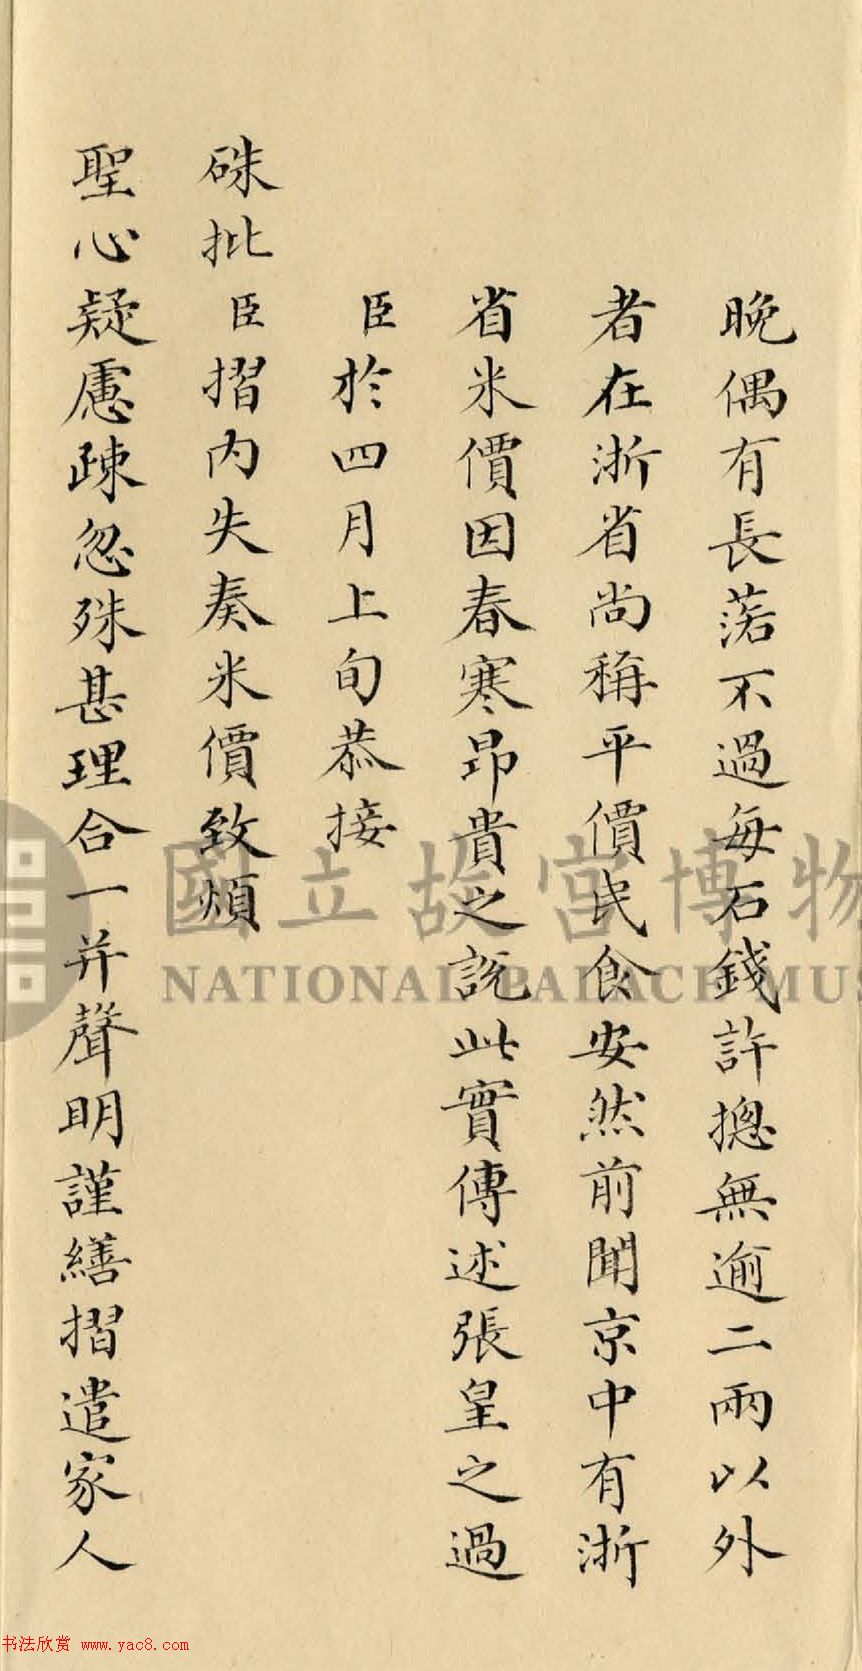 晚偶有長落不過每石錢許摠無逾二兩以外
者在浙省尚稱平價民食安然前聞京中有浙
省米價因春寒昂貴之說此實傳述張皇之過
臣於四月上旬恭接
硃批臣摺內失奏米價致煩
聖心疑慮疎忽殊甚理合一并聲明謹繕摺遣家人
國立故宮博物
NATIONAL PALACE MUS
书法欣赏 www.yac8.com